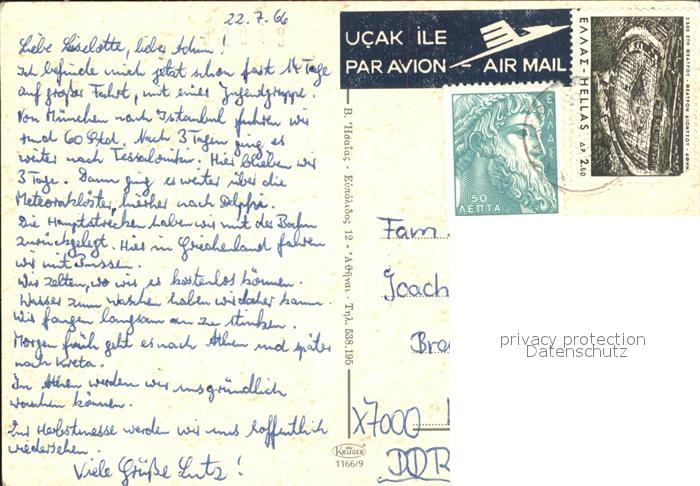 22.7.66
Liebe Liselotte, lieber Achim!
Ich befinde mich jetzt schon fast 14 Tage
auf großer Fahrt, mit einer Jugendgruppe.
Von München nach Istanbul fuhren wir
rund 60 Std. Nach 3 Tagen ging es
weiter nach Tessaloniki. Hier blieben wir
3 Tage. Dann ging es weiter über die
Meteoraklöster, hierher nach Delphi.
Die Hauptstrecken haben wir mit der Bahn
zurückgelegt. Hier in Griechenland fahren
wir mit Bussen.
Wir zelten, wo wir es kostenlos können.
Wasser zum waschen haben wir daher kaum.
Wir fangen langsam an zu stinken.
Morgen früh geht es nach Athen und später
nach Kreta.
In Athen werden wir uns gründlich
waschen können.
Zur Herbstmesse werden wir uns hoffentlich
wiedersehen.
Viele Grüße Lutz!
Β. Ἡσαΐας - Εὐπόλιδος 12 - Ἀθῆναι - Τηλ. 538.195
KRÜGER
1166/9
UÇAK İLE
PAR AVION AIR MAIL
ΕΛΛΑΣ
50
ΛΕΠΤΑ
ΕΛΛΑΣ-HELLAS ΔΡ. 2,50
Fam.
Joach
Bra
X7000
DDR
privacy protection
Datenschutz